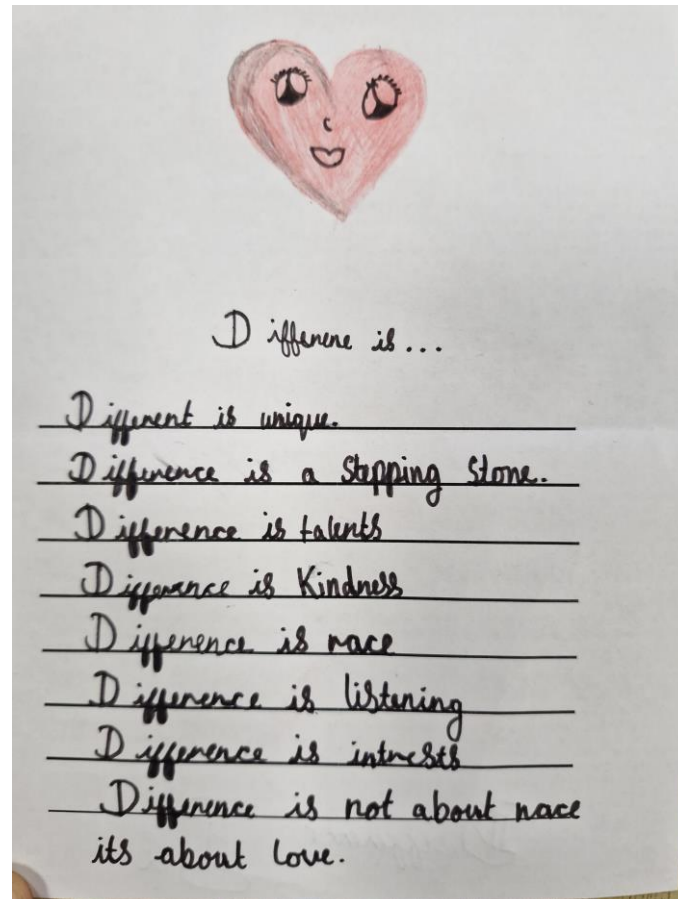 Differene is...
Different is unique.
Difference is a Stepping Stone.
Difference is talents
Differance is Kindness
Difference is race
Difference is listening
Difference is intrests
Difference is not about race
its about love.